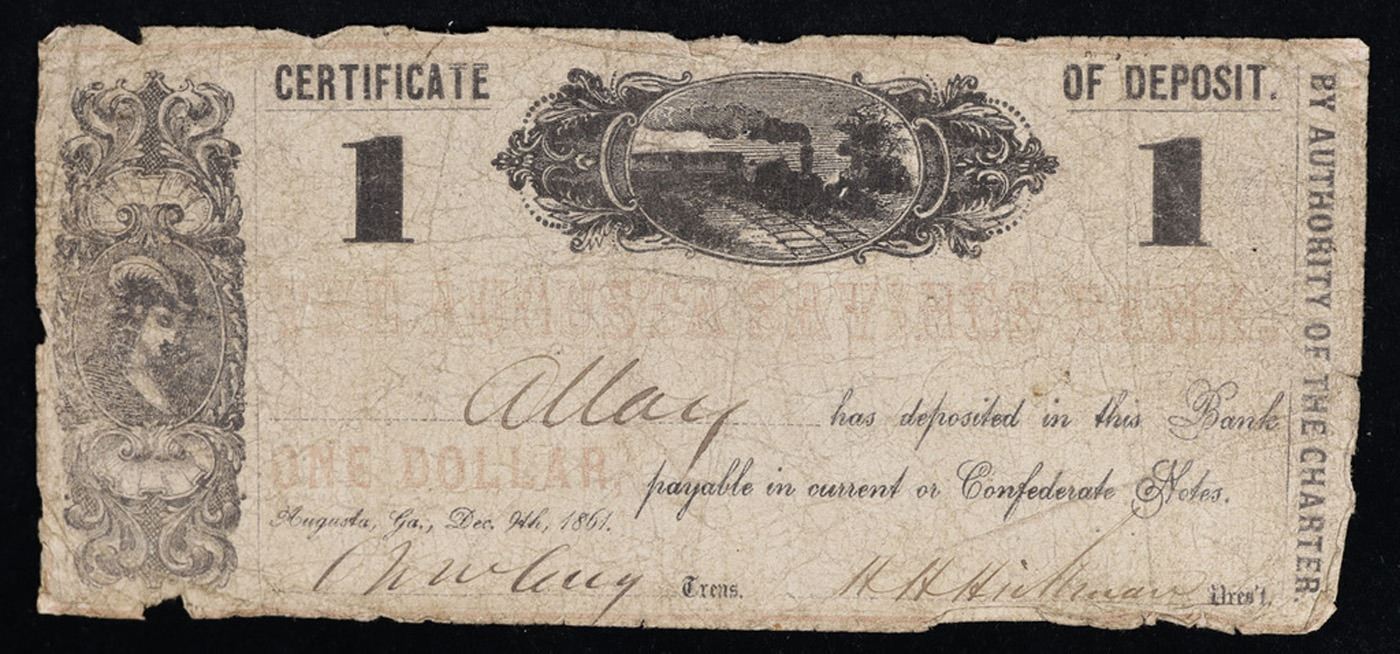 CERTIFICATE OF DEPOSIT.
1 1
THE AUGUSTA SAVINGS BANK.
has deposited in this Bank
ONE DOLLAR, payable in current or Confederate Notes.
Augusta, Ga., Dec. 9th, 1861.
Treas. H H Hickman Pres't.
BY AUTHORITY OF THE CHARTER.